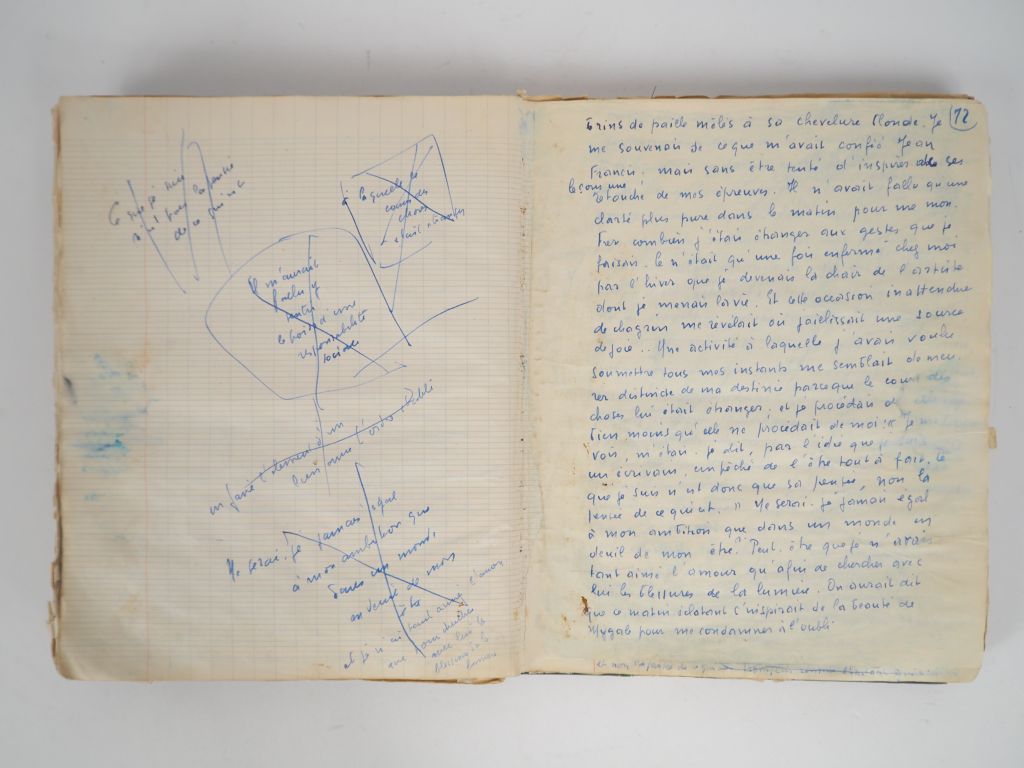 il m'aurait
fallu y
sentir
le poids d'une
responsabilité
sociale
laquelle le
cours des
choses
était étranger
l'ordre établi
Ne serai-je jamais égal
à mon ambition que
dans un monde
en deuil de mon
être
12
brins de paille mêlés à sa chevelure blonde. Je
me souvenais de ce que m'avait confié Jean
Francis. mais sans être tenté d'inspirer de ses
leçons une
retouche de mes épreuves. Il n'avait fallu qu'une
clarté plus pure dans le matin pour me mon-
trer combien j'étais étranger aux gestes que je
faisais. Ce n'était qu'une fois enfermé chez moi
par l'hiver que je devenais la chair de l'artiste
dont je menais la vie. Et cette occasion inattendue
de chagrin me révélait où jaillissait une source
de joie.. Une activité à laquelle j'avais voulu
soumettre tous mes instants me semblait demeu-
rer distincte de ma destinée parce que le cours des
choses lui était étranger, et je procédais
bien moins qu'elle ne procédait de moi : « je
vois, m'étais-je dit, par l'idée que je
un écrivain, empêché de l'être tout à fait. Ce
que je suis n'est donc que sa pensée, non la
pensée de ce qui est. » Ne serai-je jamais égal
à mon ambition que dans un monde en
deuil de mon être. Peut-être que je n'avais
tant aimé l'amour qu'afin de chercher avec
lui les blessures de la lumière. On aurait dit
que ce matin éclatant s'inspirait de la beauté de
Mygale pour me condamner à l'oubli.